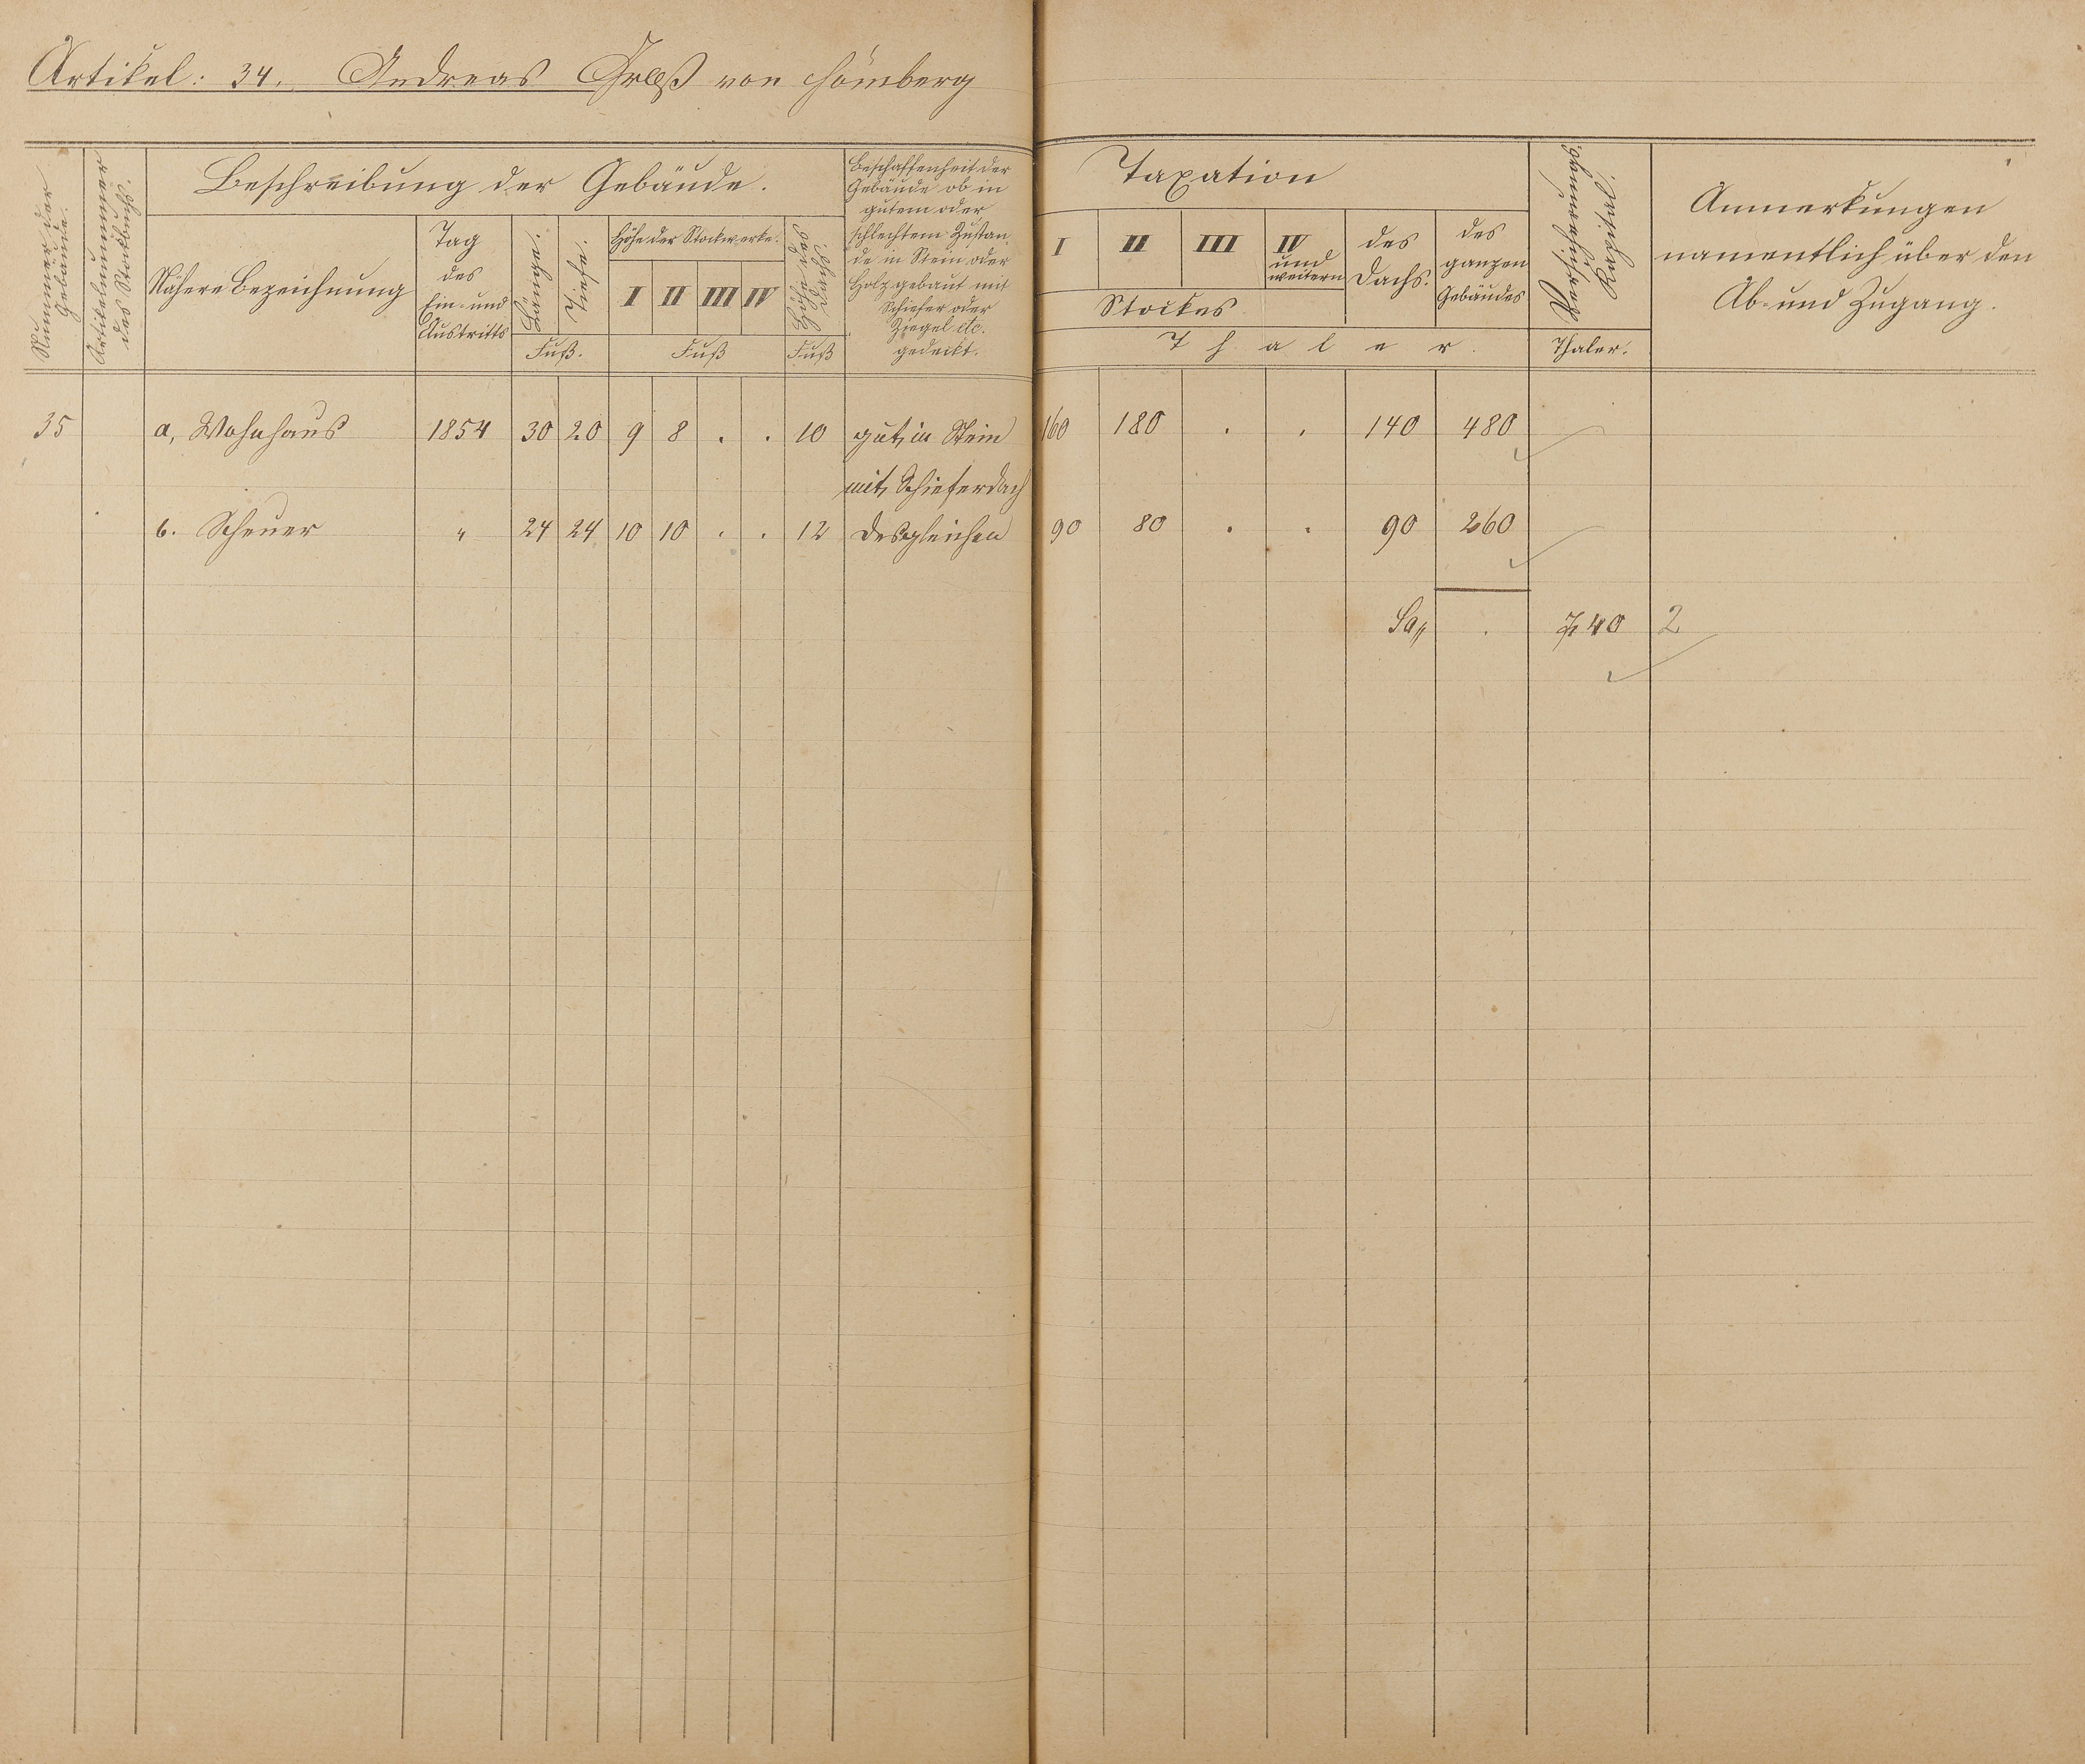 Artikel: 34. Andreas von Hömberg
Nummer der Gebäude.
Artikelnummer des Stockbuchs.
Beschreibung der Gebäude.
Nähere Bezeichnung
Tag
des
Ein- und
Austritts
Länge.
Tiefe.
Fuß.
Höhe der Stockwerke.
I II III IV
Fuß
Höhe des Dachs.
Fuß
Beschaffenheit der
Gebäude ob in
gutem oder
schlechtem Zustan-
de in Stein oder
Holz gebaut mit
Schiefer oder
Ziegel etc.
gedeckt.
Taxation
I II III IV
und
weitern
Stockes
des
Dachs.
des
ganzen
Gebäudes
Thaler.
Versicherungs Kapital.
Thaler.
Anmerkungen
namentlich über den
Ab- und Zugang.
35 a, Wohnhaus 1854 30 20 9 8 . . 10 gut, in Stein 160 180 . . 140 480
mit Schieferdach
b. Scheuer " 24 24 10 10 . . 12 desgleichen 90 80 . . 90 260
Sa. . 740 2